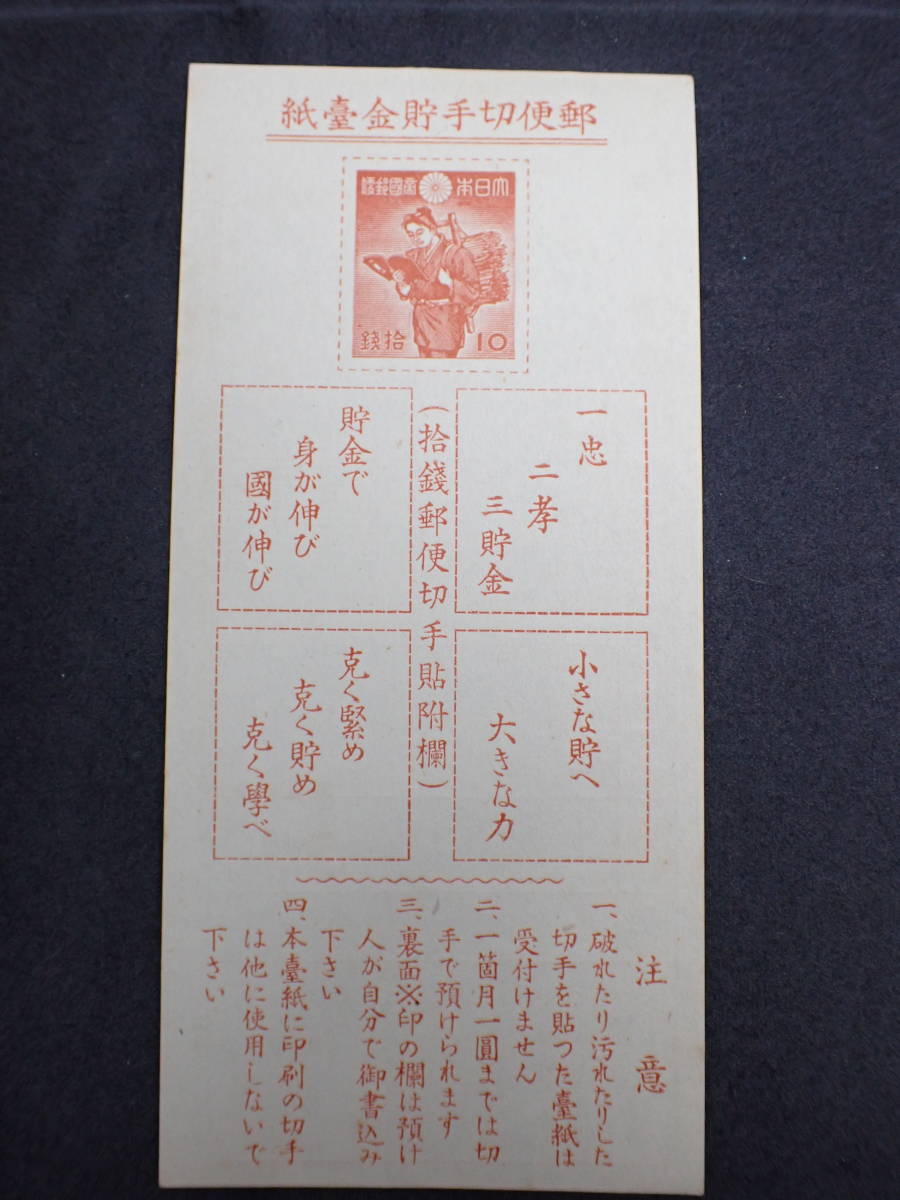 紙臺金貯手切便郵
便郵國帝 本日大
錢拾 10
一忠
二孝
三貯金
(拾錢郵便切手貼附欄)
貯金で
身が伸び
國が伸び
小さな貯へ
大きな力
克く緊め
克く貯め
克く學べ
注意
一、破れたり汚れたりした
切手を貼つた臺紙は
受付けません
二、一箇月一圓までは切
手で預けられます
三、裏面※印の欄は預け
人が自分で御書込み
下さい
四、本臺紙に印刷の切手
は他に使用しないで
下さい